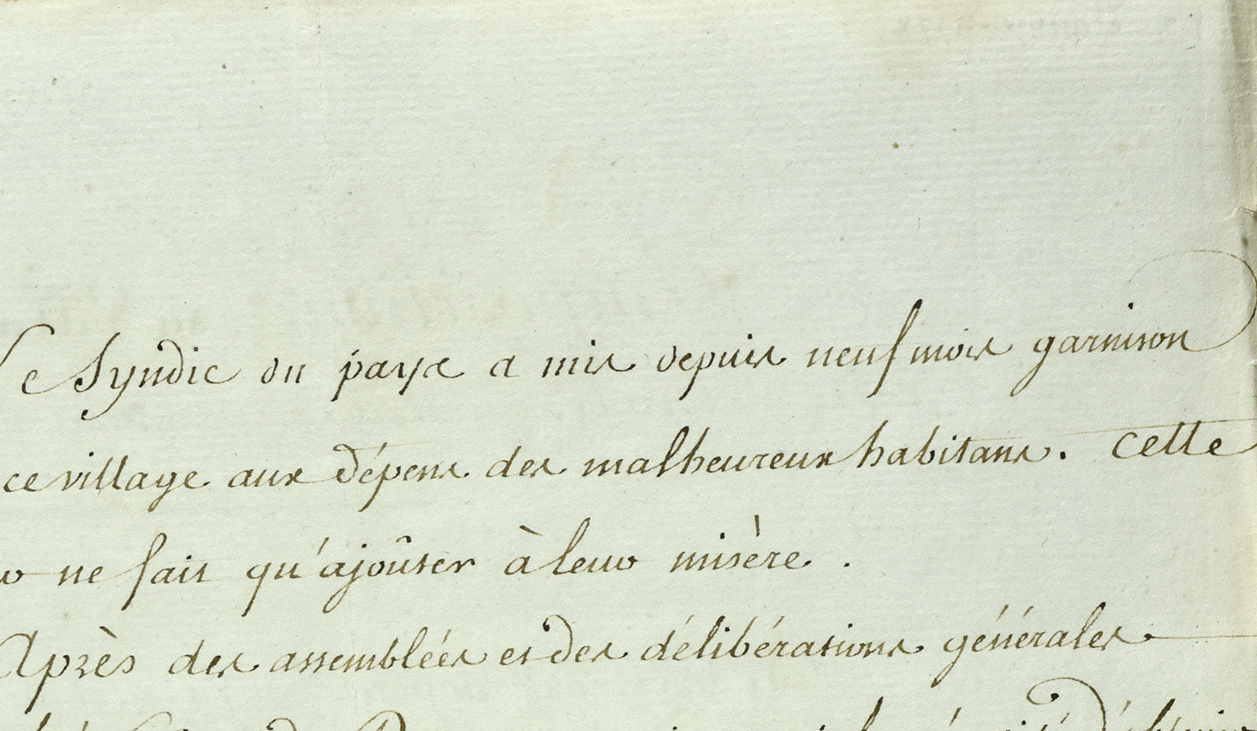 Le Syndic du pays a mis depuis neuf mois garnison
ce village aux dépens des malheureux habitans. Cette
ne fait qu'ajoûter à leur misère.
Après des assemblées et des délibérations générales